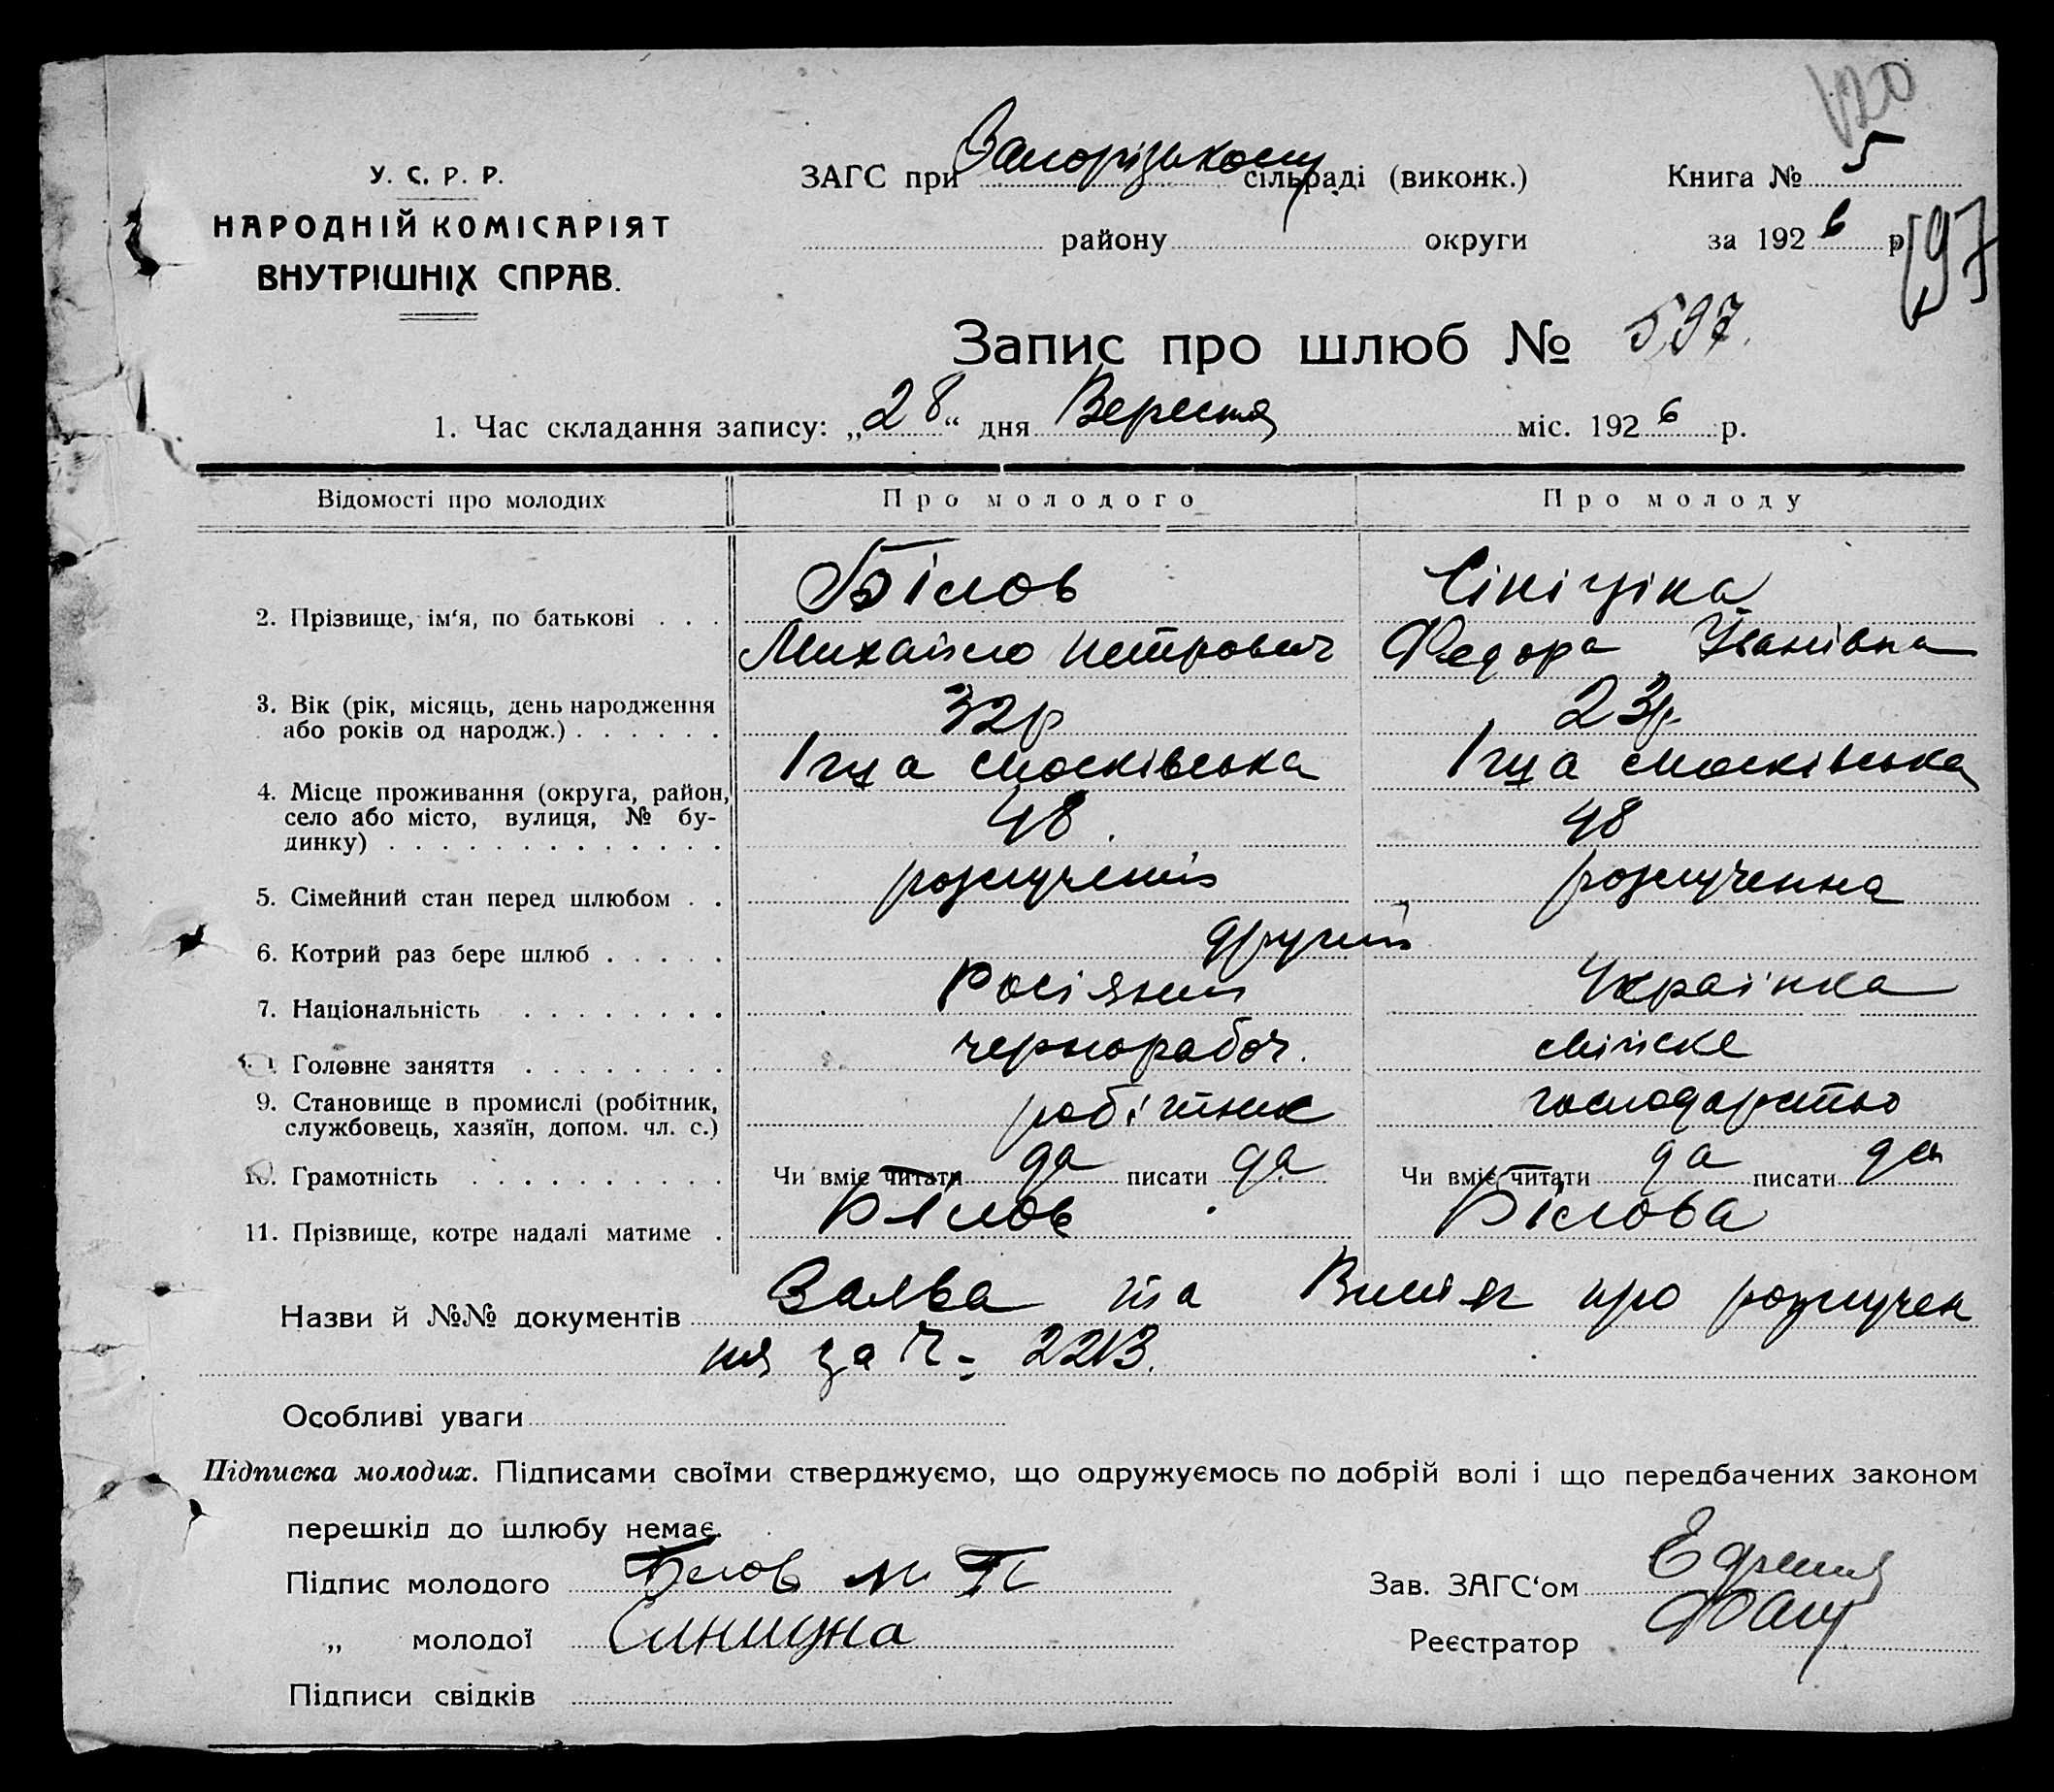 120
У. С. Р. Р.
НАРОДНІЙ КОМІСАРІЯТ
ВНУТРІШНІХ СПРАВ.
ЗАГС при Запорізькому сільраді (виконк.)
району округи
Книга № 5
за 1926 р.
597
Запис про шлюб № 597.
1. Час складання запису: „28“ дня Вересня міс. 1926 р.
Відомості про молодих Про молодого Про молоду
2. Прізвище, ім‘я, по батькові . . . Білов Сініціна
Михайло Петрович Федора Іванівна
3. Вік (рік, місяць, день народження 32р 23р
або років од народж.) . . . . . .
4. Місце проживання (округа, район, Iгца московська Iгца московська
село або місто, вулиця, № бу- 48. 48
динку) . . . . . . . . . . . . .
5. Сімейний стан перед шлюбом . . розлучений розлученна
6. Котрий раз бере шлюб . . . . . другий
7. Національність . . . . . . . . Росіянин Українка
Головне заняття . . . . . . . . чернорабоч. хатнє
9. Становище в промислі (робітник, робітник господарство
службовець, хазяїн, допом. чл. с.)
10. Грамотність . . . . . . . . . . Чи вміє читати да писати да Чи вміє читати да писати да
11. Прізвище, котре надалі матиме . Білов Білова
Назви й №№ документів Заява та Витяг про розлучен
ня за Ч- 2213.
Особливі уваги
Підписка молодих. Підписами своїми стверджуємо, що одружуємось по добрій волі і що передбачених законом
перешкід до шлюбу немає.
Підпис молодого Белов М П
„ молодої Синицина
Підписи свідків
Зав. ЗАГС‘ом
Реєстратор